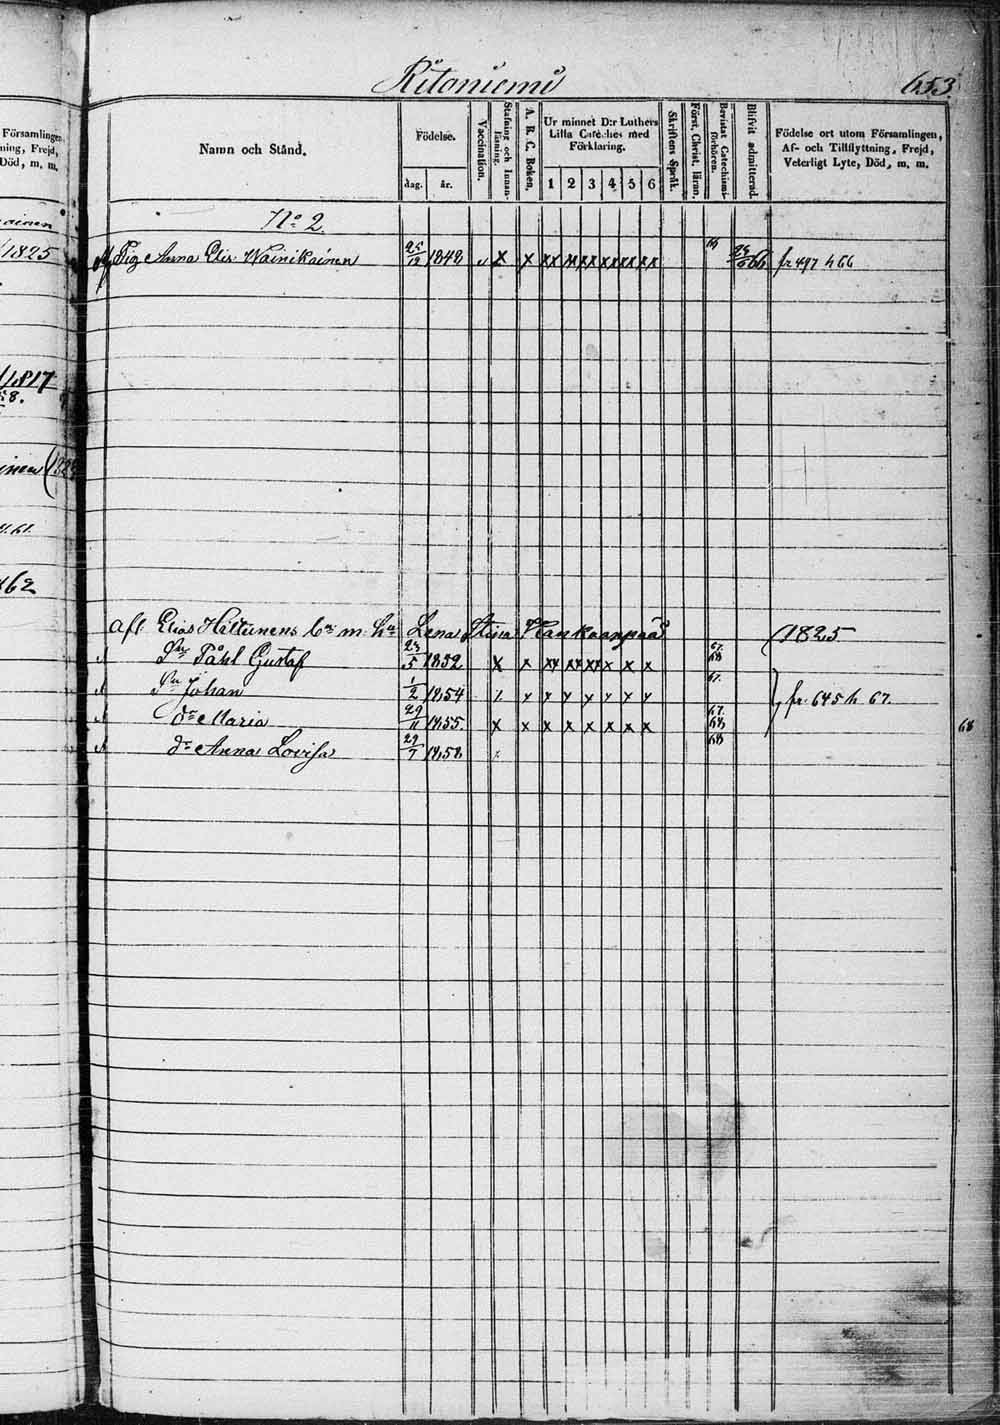 Ritoniemi 653.
Församlingen,
ning, Frejd,
Död, m. m.
Namn och Stånd.
Födelse.
dag. år.
Vaccination.
Stafning och Innan-läsning.
A. B. C. Boken.
Ur minnet D:r Luthers
Lilla Catéches med
Förklaring.
1 2 3 4 5 6
Skriftens Språk.
Först. Christ. läran.
Bevistat Catechismi-förhören.
Blifvit admitterad.
Födelse ort utom Församlingen,
Af- och Tillflyttning, Frejd,
Veterligt Lyte, Död, m. m.
ainen
1825
No 2.
Pig Anna Elis. Wainikainen 25/12 1848 x x xx xx xx xx xx 66 66 fr 497 h 66
1817
58.
inen
61.
62
Afl. Elias Hiltunens Lena Stina Kankaanpää (1825
Sn Påhl Gustaf 23/5 1852 x x xx xx xx x x x 67. 68
Sn Johan 1/2 1854 x x x x x x x x 67. } fr. 645 h 67.
dr Maria 29/11 1855. x x x x x x x x 67. 68 68
dr Anna Lovisa 29/7 1858 x 68